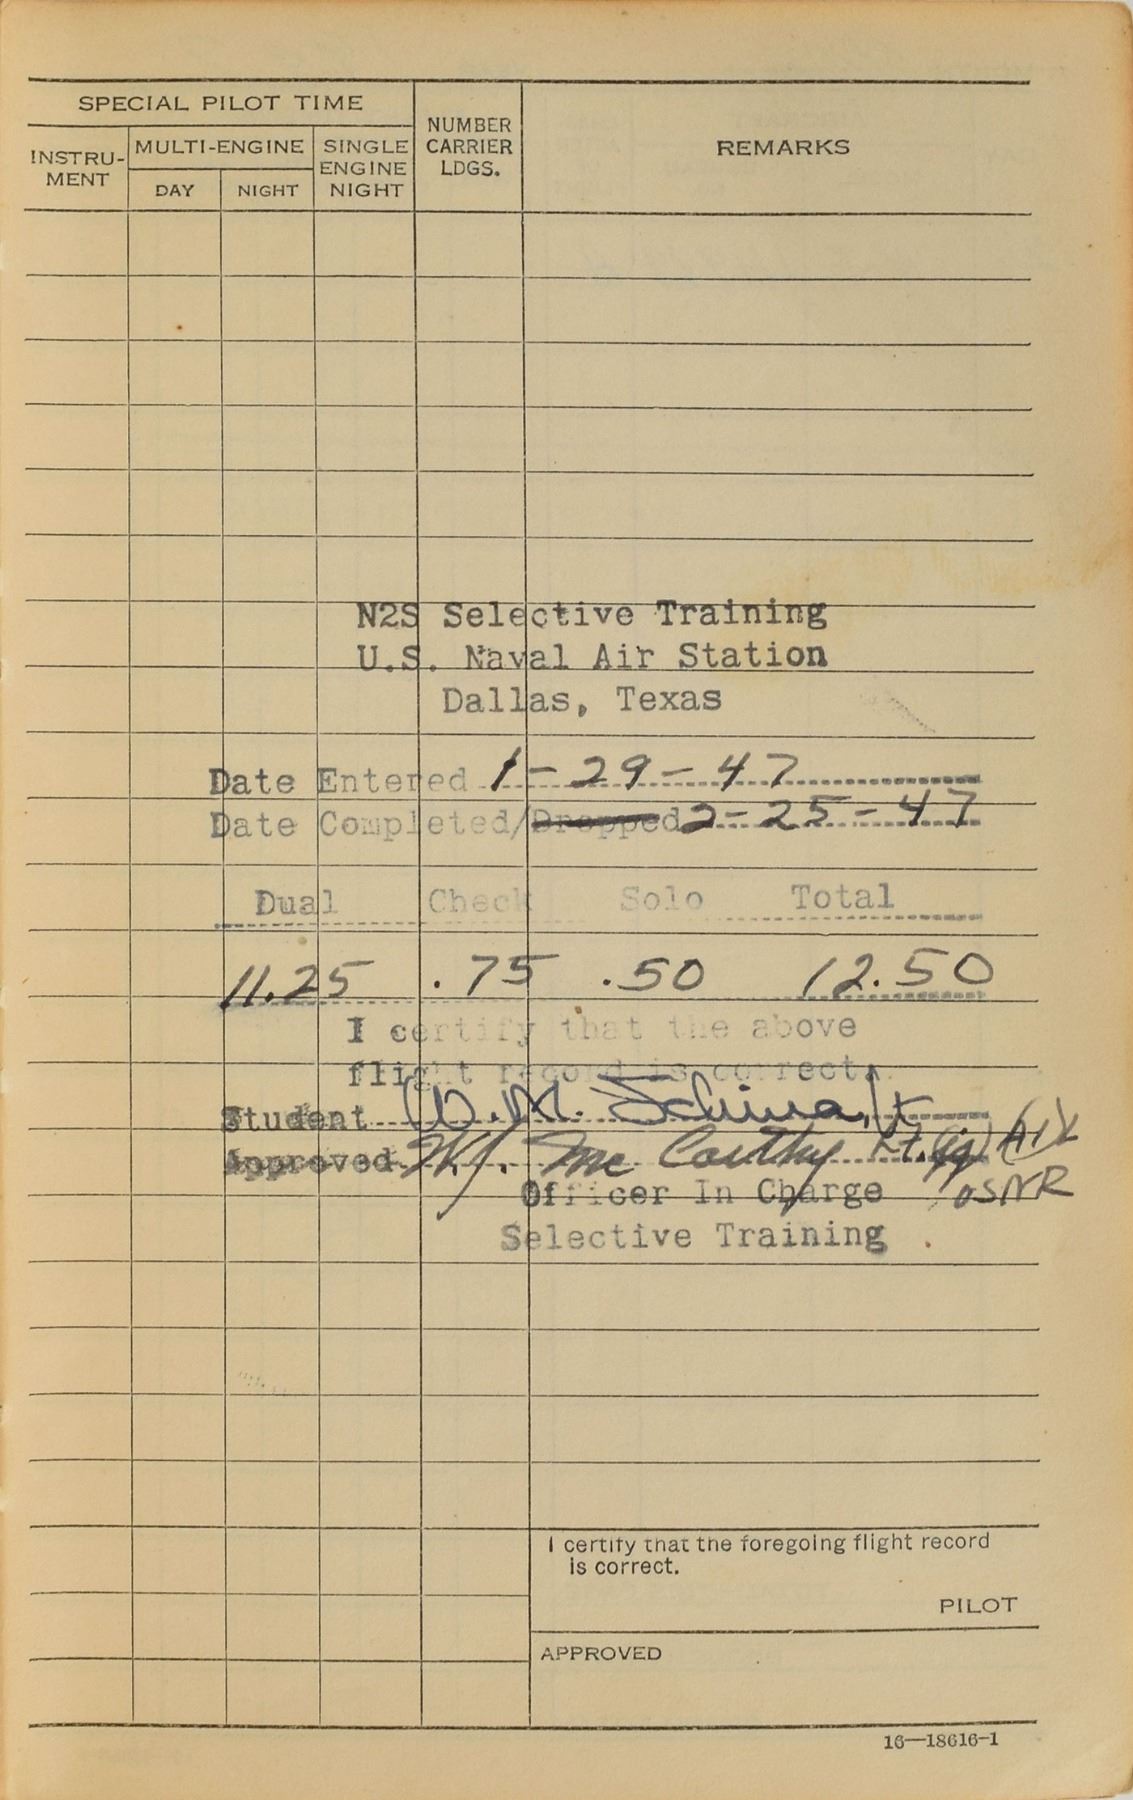 SPECIAL PILOT TIME
INSTRU-
MENT
MULTI-ENGINE
DAY
NIGHT
SINGLE
ENGINE
NIGHT
NUMBER
CARRIER
LDGS.
REMARKS
N2S Selective Training
U.S. Naval Air Station
Dallas, Texas
Date Entered 1-29-47
Date Completed/Dropped 2-25-47
Dual Check Solo Total
11.25 .75 .50 12.50
I certify that the above
flight record is correct.
Student W.M.
Approved W.J. McCarthy Lt.(jg) A1L
USNR
Officer In Charge
Selective Training
I certify that the foregoing flight record
is correct.
PILOT
APPROVED
16—18616-1